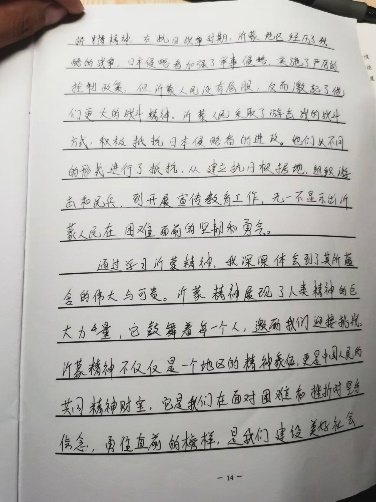 精神。在抗日战争时期，沂蒙地区经历了残
酷的战争，日本侵略者加强了军事侵略，实施了严厉的
控制政策，但沂蒙人民没有屈服，反而激起了他
们更大的战斗精神。沂蒙人民采取了游击战的战斗
方式，积极抵抗日本侵略者的进攻。他们以不同
的形式进行了抵抗，从建立抗日根据地，组织游
击和民兵，到开展宣传教育工作，无一不显示出沂
蒙人民在困难面前的坚韧和勇气。
通过学习沂蒙精神，我深深体会到了其所蕴
含的伟大与可贵。沂蒙精神展现了人类精神的巨
大力量，它鼓舞着每一个人，激励我们迎接挑战。
沂蒙精神不仅仅是一个地区的精神象征，更是中国人民的
共同精神财富，它是我们在面对困难和挫折时坚守
信念，勇往直前的榜样，是我们建设美好社会
- 14 -